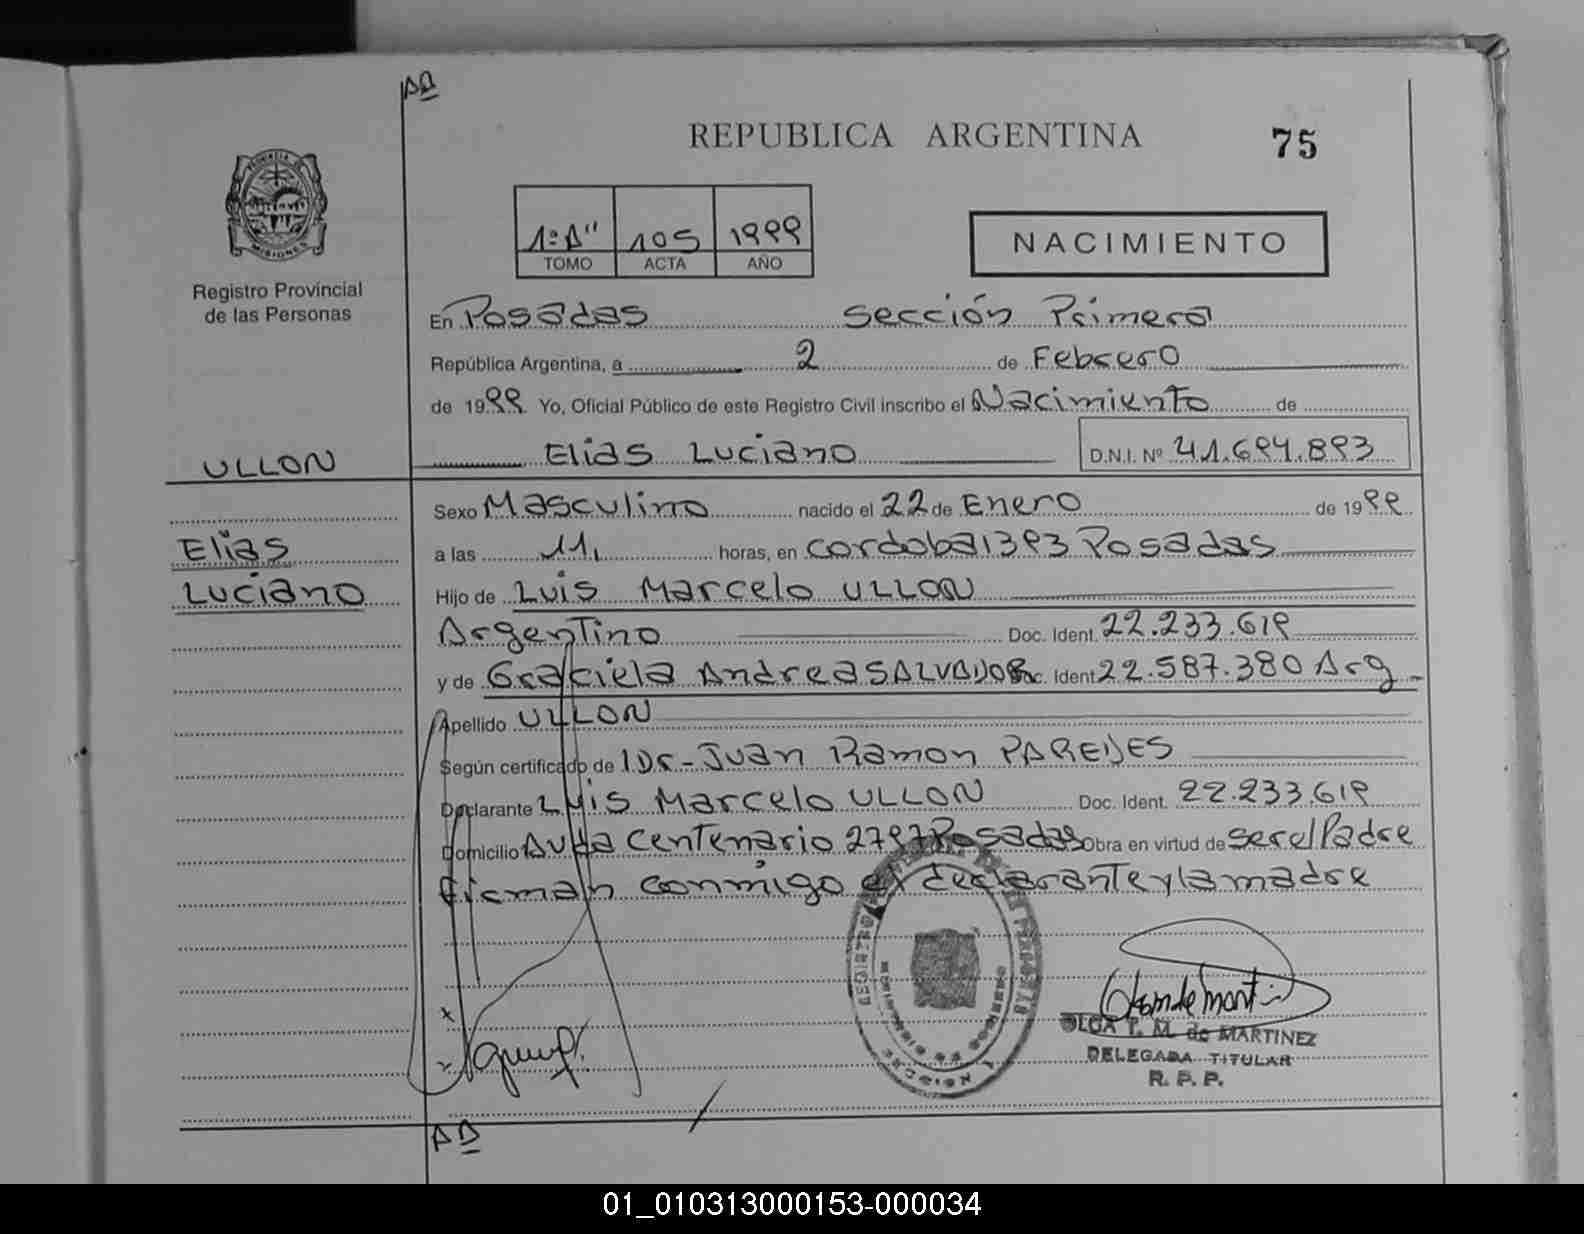 AD
REPUBLICA ARGENTINA
75
PROVINCIA DE
MISIONES
Registro Provincial
de las Personas
1º A" 105 1999
TOMO ACTA AÑO
NACIMIENTO
En Posadas Sección Primera
República Argentina, a 2 de Febrero
de 1999 Yo, Oficial Público de este Registro Civil inscribo el Nacimiento de
ULLON
Elias Luciano D.N.I. Nº 41.694.893
Sexo Masculino nacido el 22 de Enero de 1999
Elias
Luciano
a las 11, horas, en cordoba 1393 Posadas
Hijo de Luis Marcelo ULLON
Argentino Doc. Ident. 22.233.619
y de Graciela Andrea SALVADOR Doc. Ident 22.587.380 Arg
Apellido ULLON
Según certificado de Dr- Juan Ramon PAREDES
Declarante Luis Marcelo ULLON Doc. Ident. 22.233.619
Domicilio Avda Centenario 2797 Posadas Obra en virtud de ser el Padre
firman conmigo el declarante y la madre
OLGA T. M. de MARTINEZ
DELEGADA TITULAR
R. P. P.
AD
01_010313000153-000034